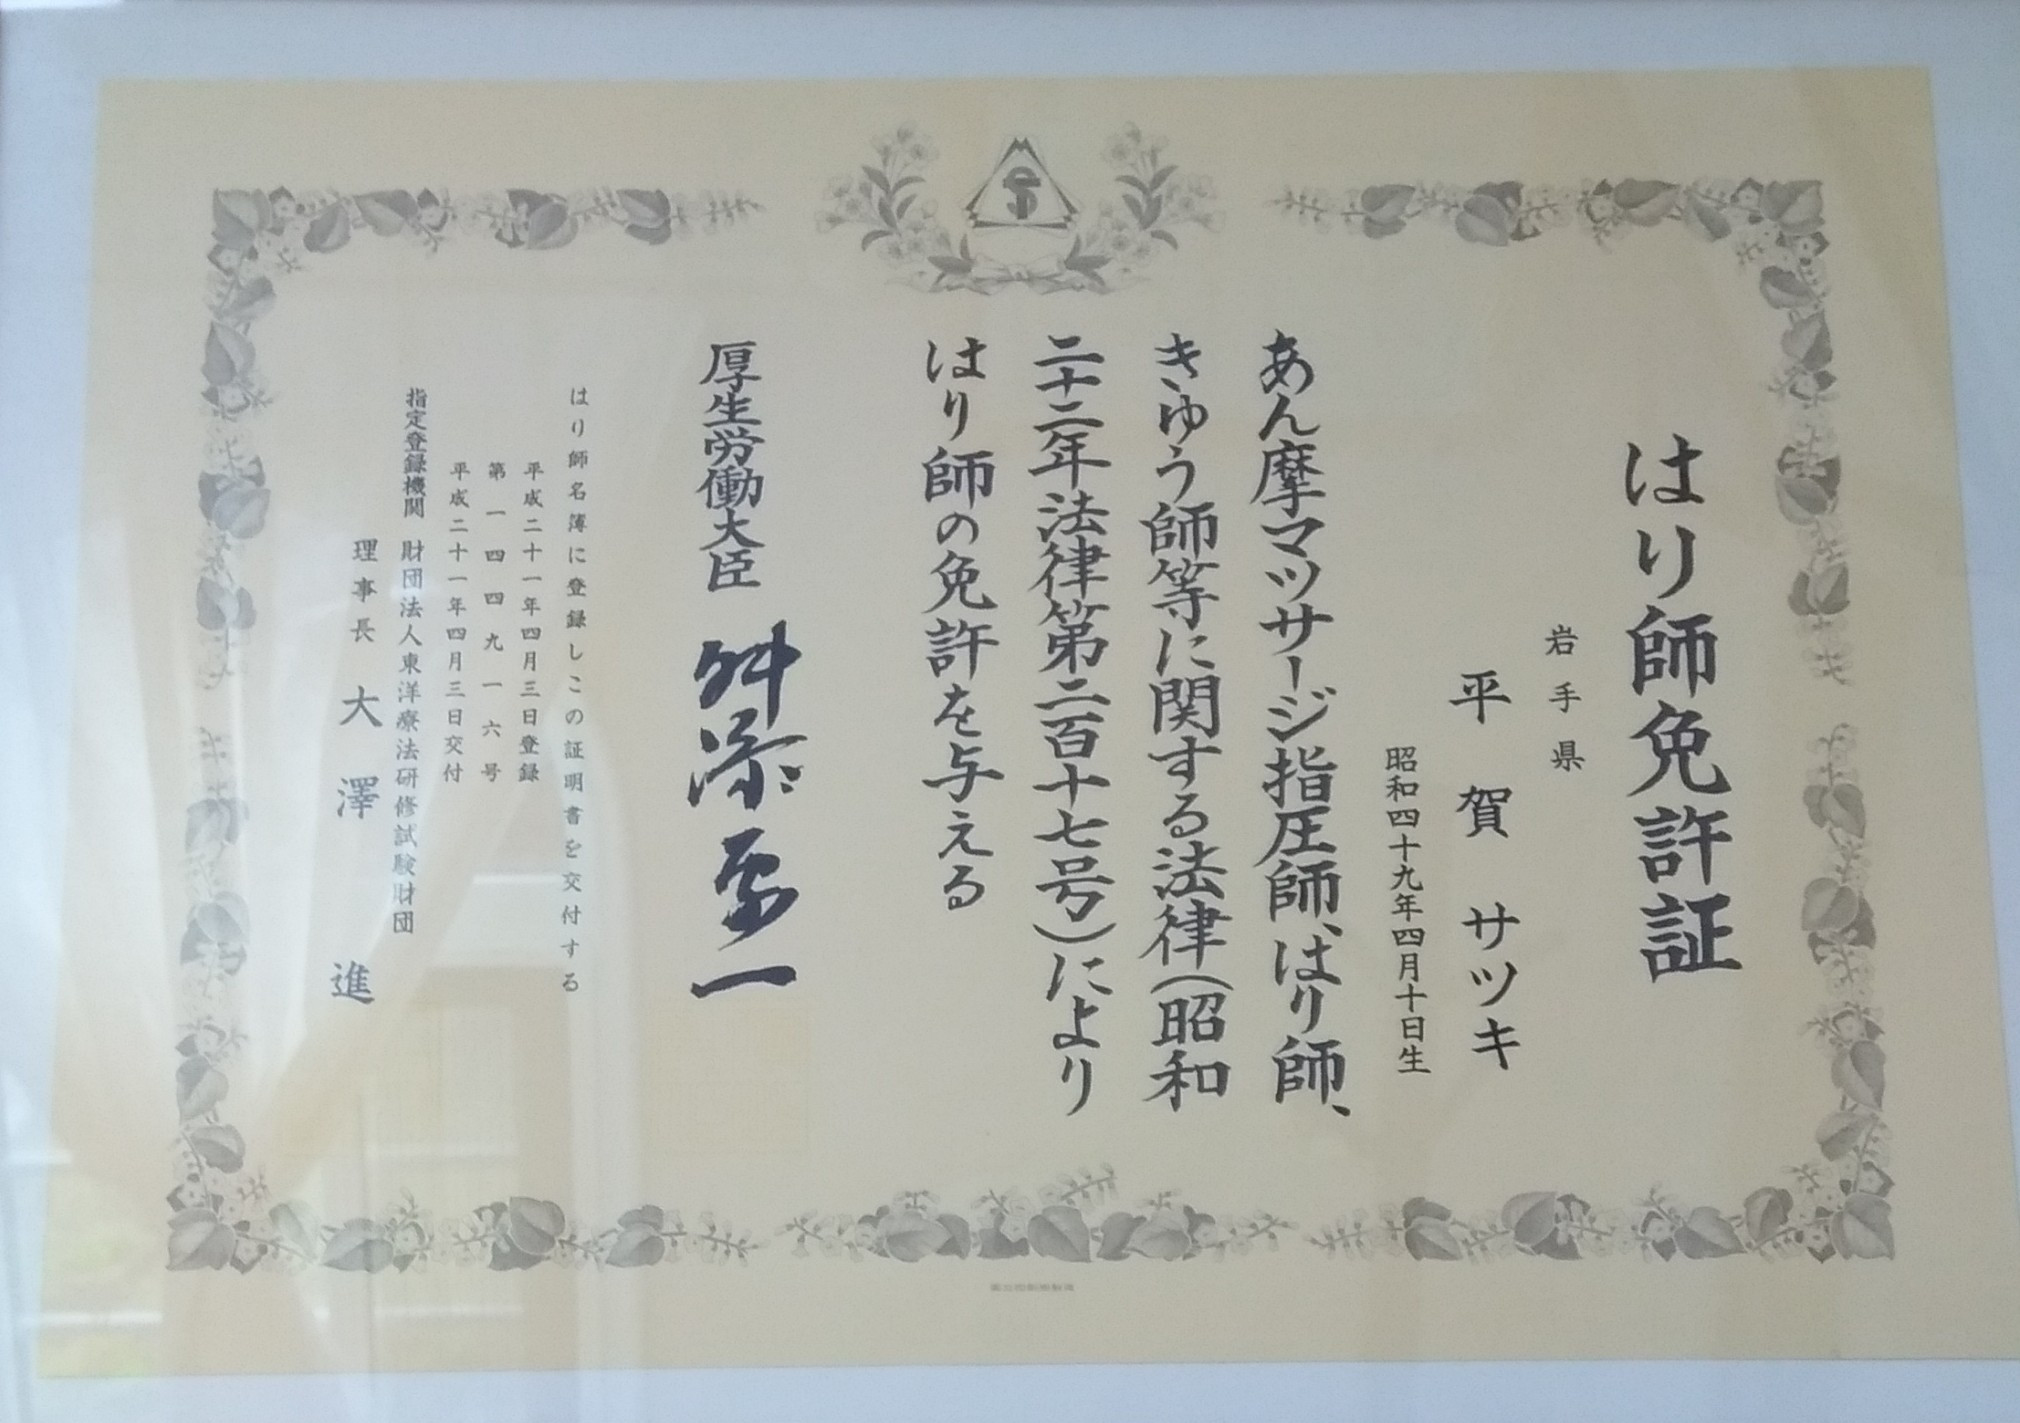 はり師免許証
岩手県
平賀サツキ
昭和四十九年四月十日生
あん摩マツサージ指圧師、はり師、
きゆう師等に関する法律(昭和
二十二年法律第二百十七号)により
はり師の免許を与える
厚生労働大臣 舛添要一
はり師名簿に登録しこの証明書を交付する
平成二十一年四月三日登録
第一四四九一六号
平成二十一年四月三日交付
指定登録機関 財団法人東洋療法研修試験財団
理事長 大澤進